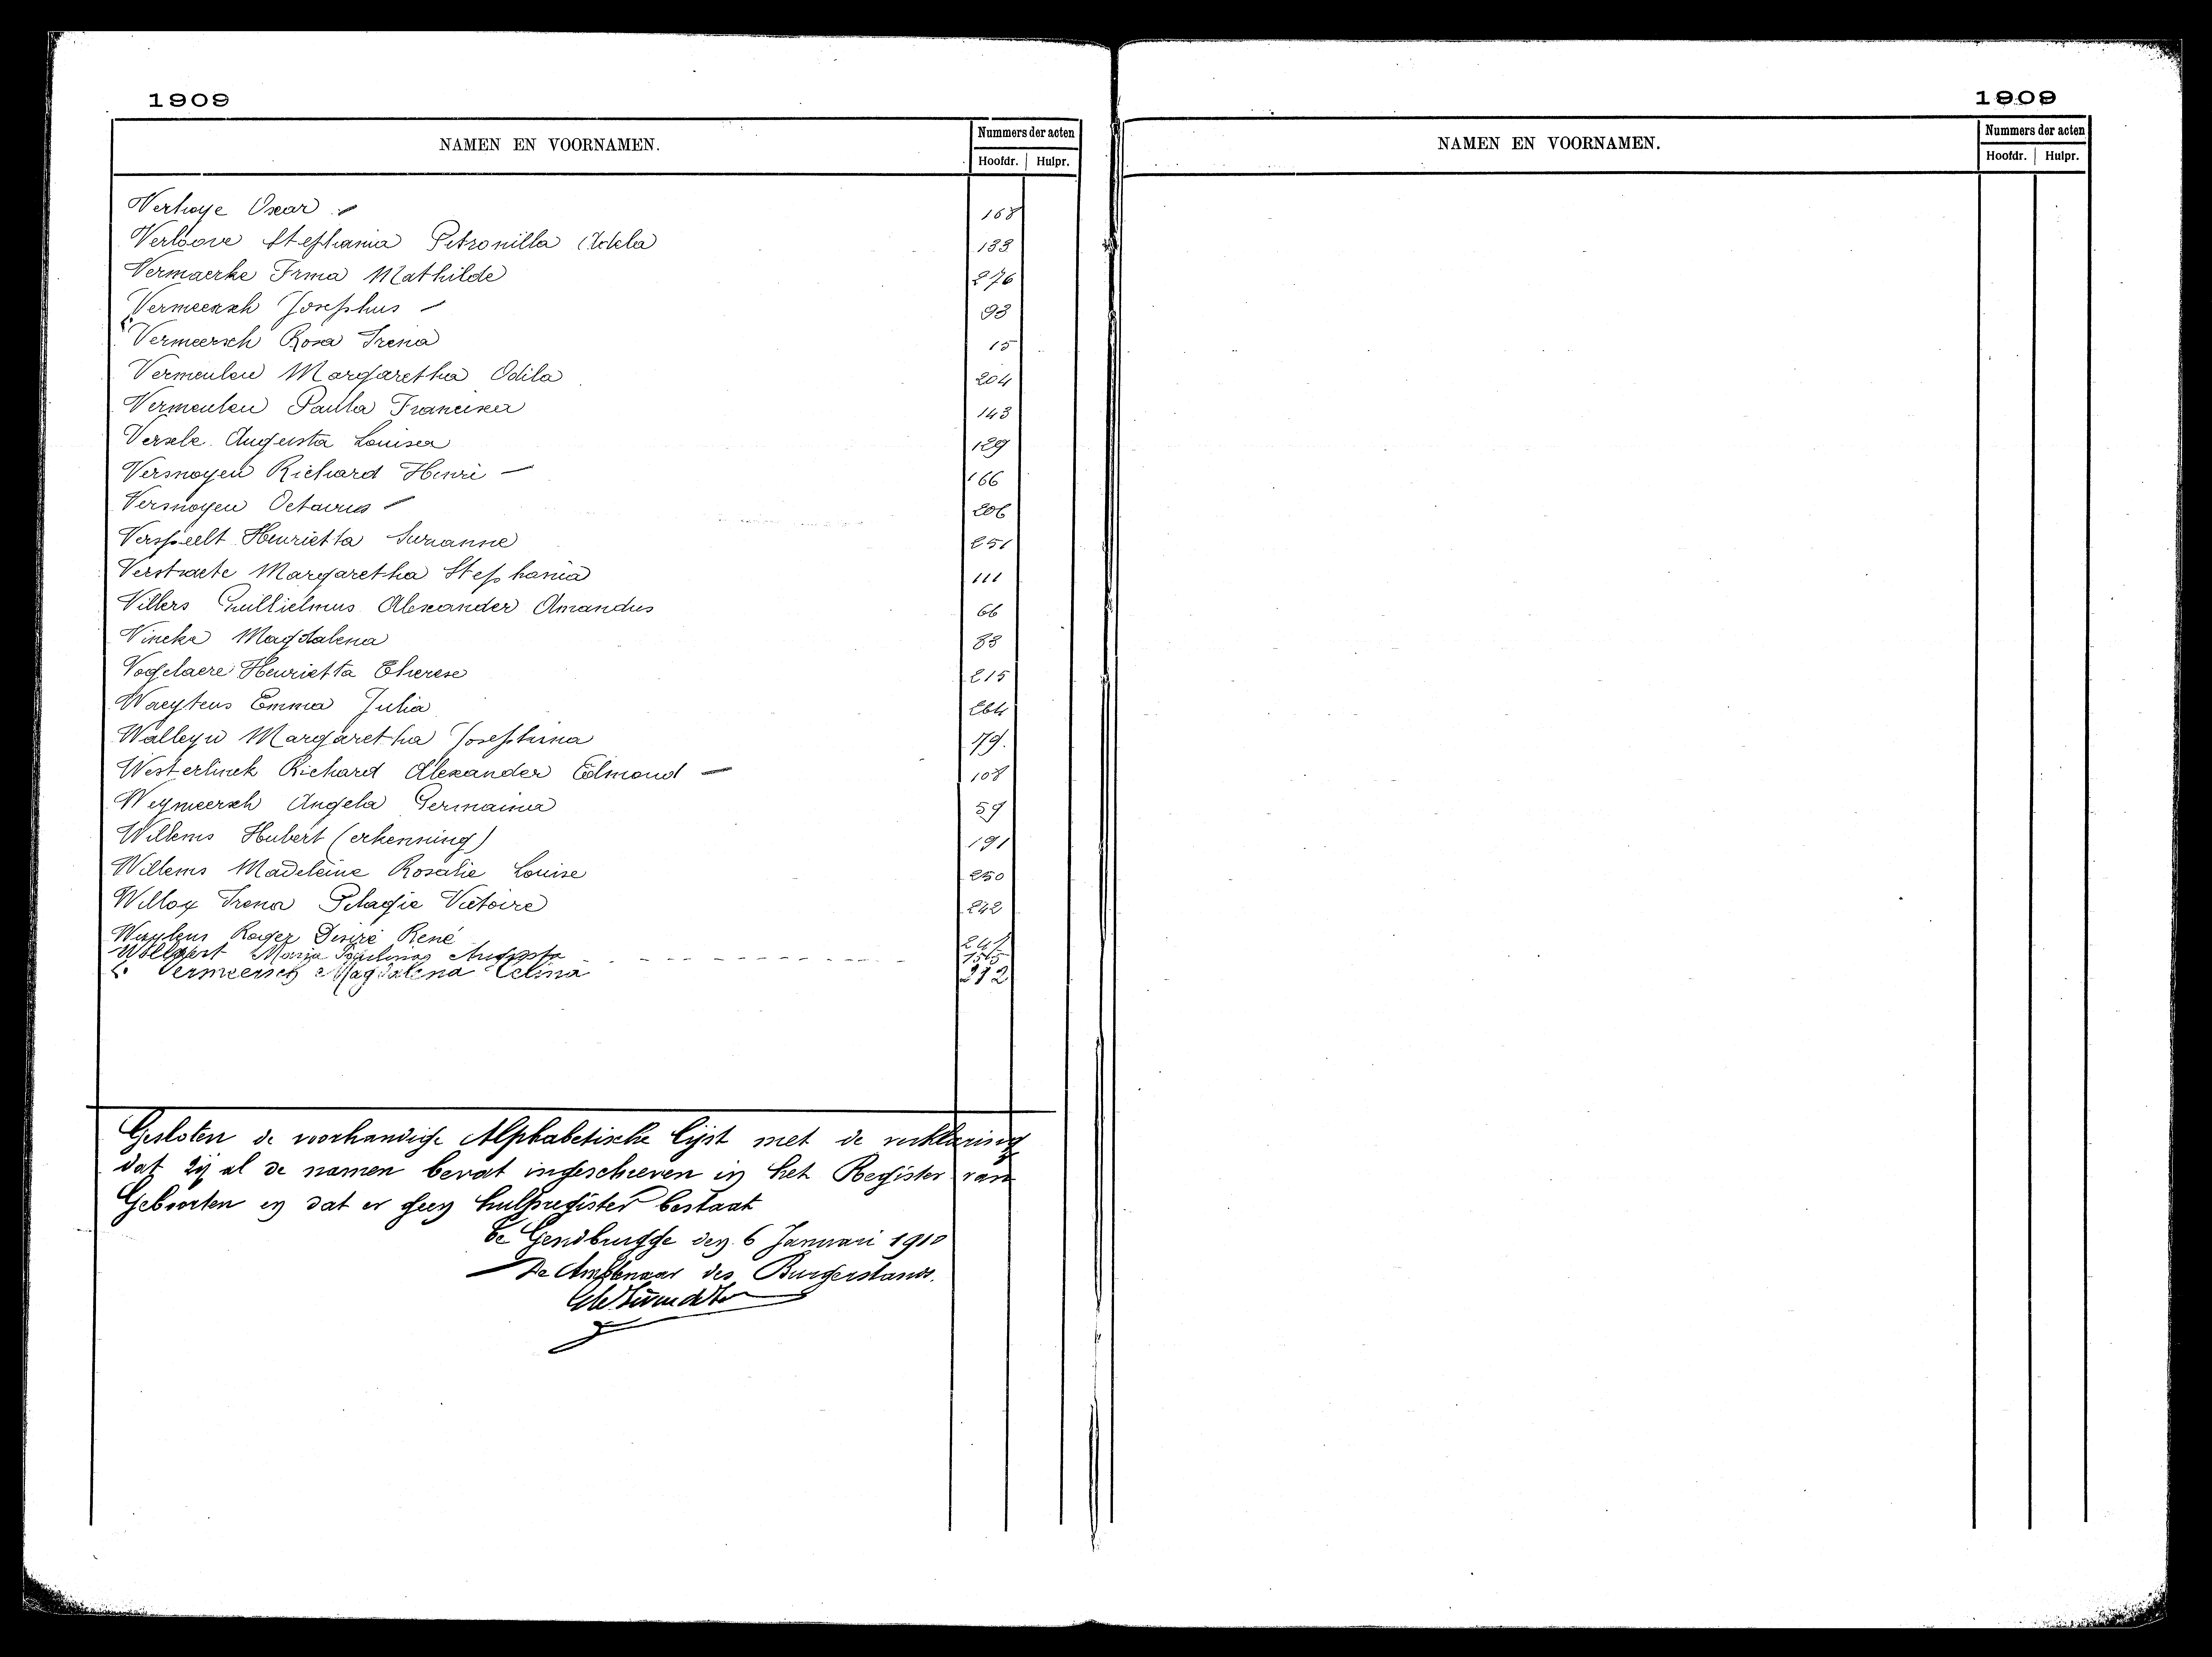 1909
NAMEN EN VOORNAMEN.
Nummers der acten
Hoofdr. Hulpr.
Verhoye Oscar 168
Verloove Stephania Petronilla Adela 133
Vermaerke Irma Mathilde 276
Vermeersch Josephus 93
Vermeersch Rosa Irena 15
Vermeulen Margaretha Odila 204
Vermeulen Paula Francisca 143
Versele Augusta Louisa 129
Vermoyen Richard Henri 166
Vermoyen Octavus 206
Verspeelt Henrietta Suzanne 251
Verstraete Margaretha Stephania 111
Villers Guillielmus Alexander Amandus 66
Vincke Magdalena 83
Vogelaere Henrietta Therese 215
Waeytens Emma Julia 264
Walleyn Margaretha Josephina 79.
Westerlinck Richard Alexander Edmond 108
Weymeersch Angela Germaina 59
Willems Hubert (erkenning) 191
Willems Madeleine Rosalie Louise 250
Willox Irena Pelagie Victoire 242
Roger Desiré René 241
Maria Paulina Augusta 155
Vermeersch Magdalena Celina 212
Gesloten de voorhandige Alphabetische lijst met de verklaring
dat zij al de namen bevat ingeschreven in het Register van
Geboorten en dat er geen hulpregister bestaat
te Gendbrugge den 6 Januari 1910
De Ambtenaar des Burgerstands.
1909
NAMEN EN VOORNAMEN.
Nummers der acten
Hoofdr. Hulpr.